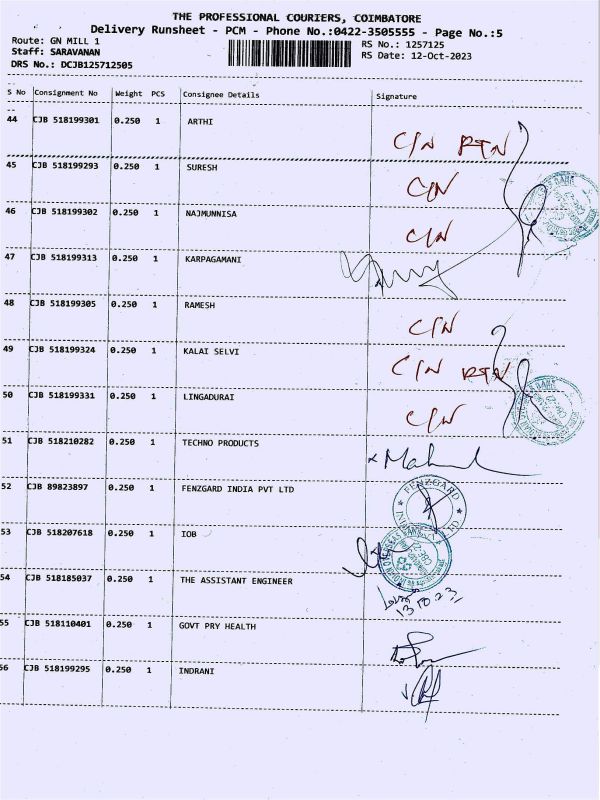 THE PROFESSIONAL COURIERS, COIMBATORE
Delivery Runsheet - PCM - Phone No.:0422-3505555 - Page No.:5
Route: GN MILL 1 RS No.: 1257125
Staff: SARAVANAN RS Date: 12-Oct-2023
DRS No.: DCJB125712505
S No Consignment No Weight PCS Consignee Details Signature
44 CJB 518199301 0.250 1 ARTHI
C/N RTN
45 CJB 518199293 0.250 1 SURESH
C/N
46 CJB 518199302 0.250 1 NAJMUNNISA
C/N
47 CJB 518199313 0.250 1 KARPAGAMANI
48 CJB 518199305 0.250 1 RAMESH
C/N
49 CJB 518199324 0.250 1 KALAI SELVI
C/N RTN
50 CJB 518199331 0.250 1 LINGADURAI
C/N
51 CJB 518210282 0.250 1 TECHNO PRODUCTS
52 CJB 89823897 0.250 1 FENZGARD INDIA PVT LTD
FENZGARD
53 CJB 518207618 0.250 1 IOB
54 CJB 518185037 0.250 1 THE ASSISTANT ENGINEER
13 10 23
55 CJB 518110401 0.250 1 GOVT PRY HEALTH
56 CJB 518199295 0.250 1 INDRANI